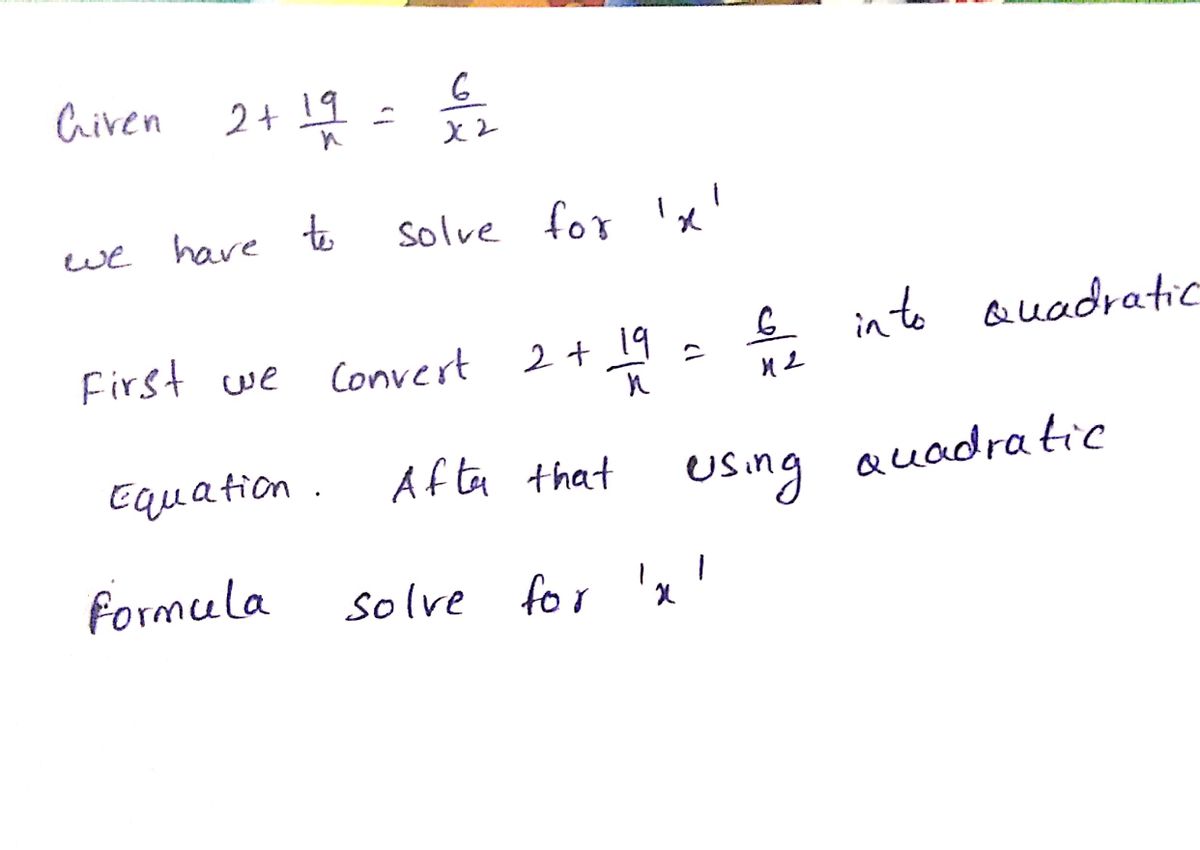 Given 2 + 19/x = 6/x2
we have to solve for 'x'
First we Convert 2 + 19/x = 6/x2 into Quadratic
Equation. After that using quadratic
formula solve for 'x'